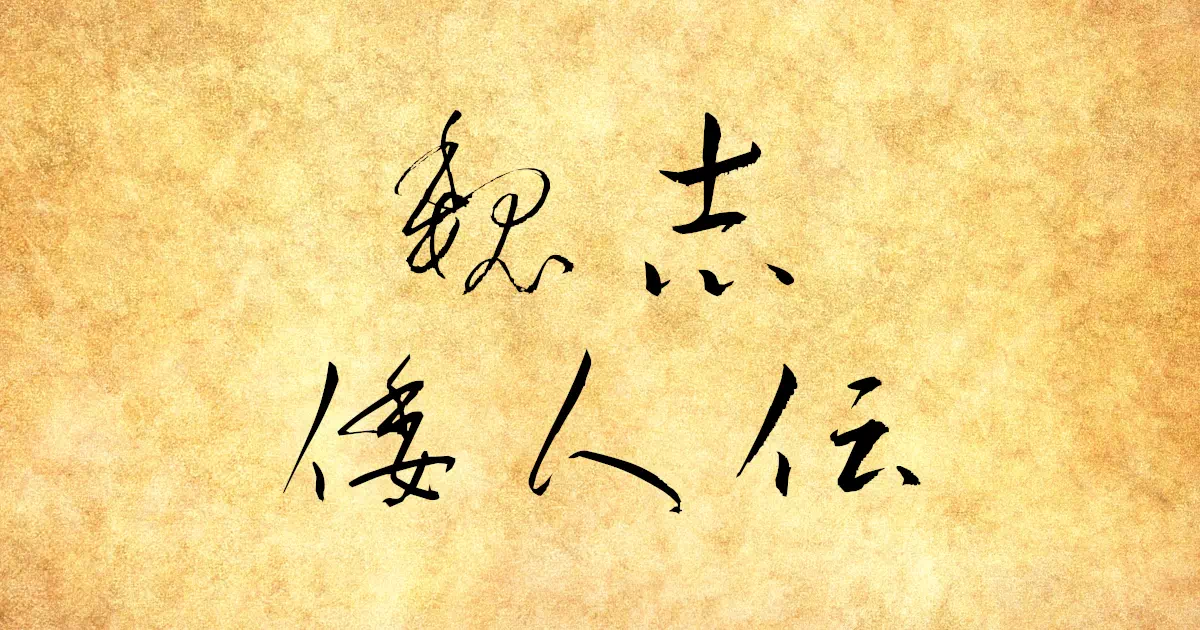 魏志
倭人伝